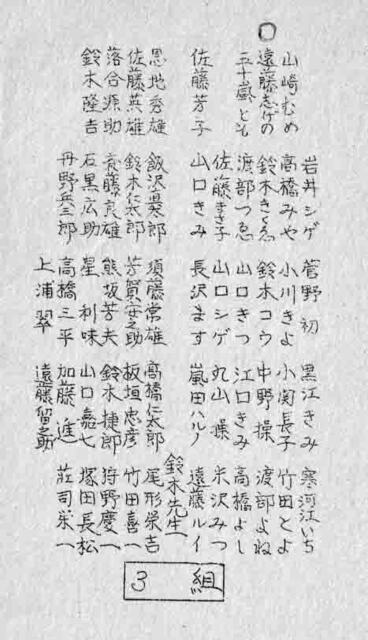 岩井シゲ 菅野初 黒江きみ 寒河江いち
山崎むめ 高橋みや 小川きよ 小関長子 竹田とよ
遠藤志げの 鈴木きくゑ 鈴木コウ 中野操 渡部よね
五十嵐とも 渡部つゑ 山口きつ 江口きみ 高橋よし
佐藤まさ子 山口シゲ 丸山操 米沢みつ
佐藤芳子 山口きみ 長沢ます 嵐田ハルノ 遠藤ルイ
鈴木先生
恩地秀雄 須藤常雄 高橋仁太郎 尾形栄吉
佐藤英雄 鈴木仁太郎 芳賀安之助 板垣忠彦 竹田喜一
落合源助 斎藤良雄 熊坂芳夫 鈴木捷郎 狩野慶一
鈴木隆吉 石黒広助 星利味 山口嘉七 塚田長松
丹野兵三郎 高橋三平 加藤進 荘司栄一
上浦翠 遠藤留之助
3組